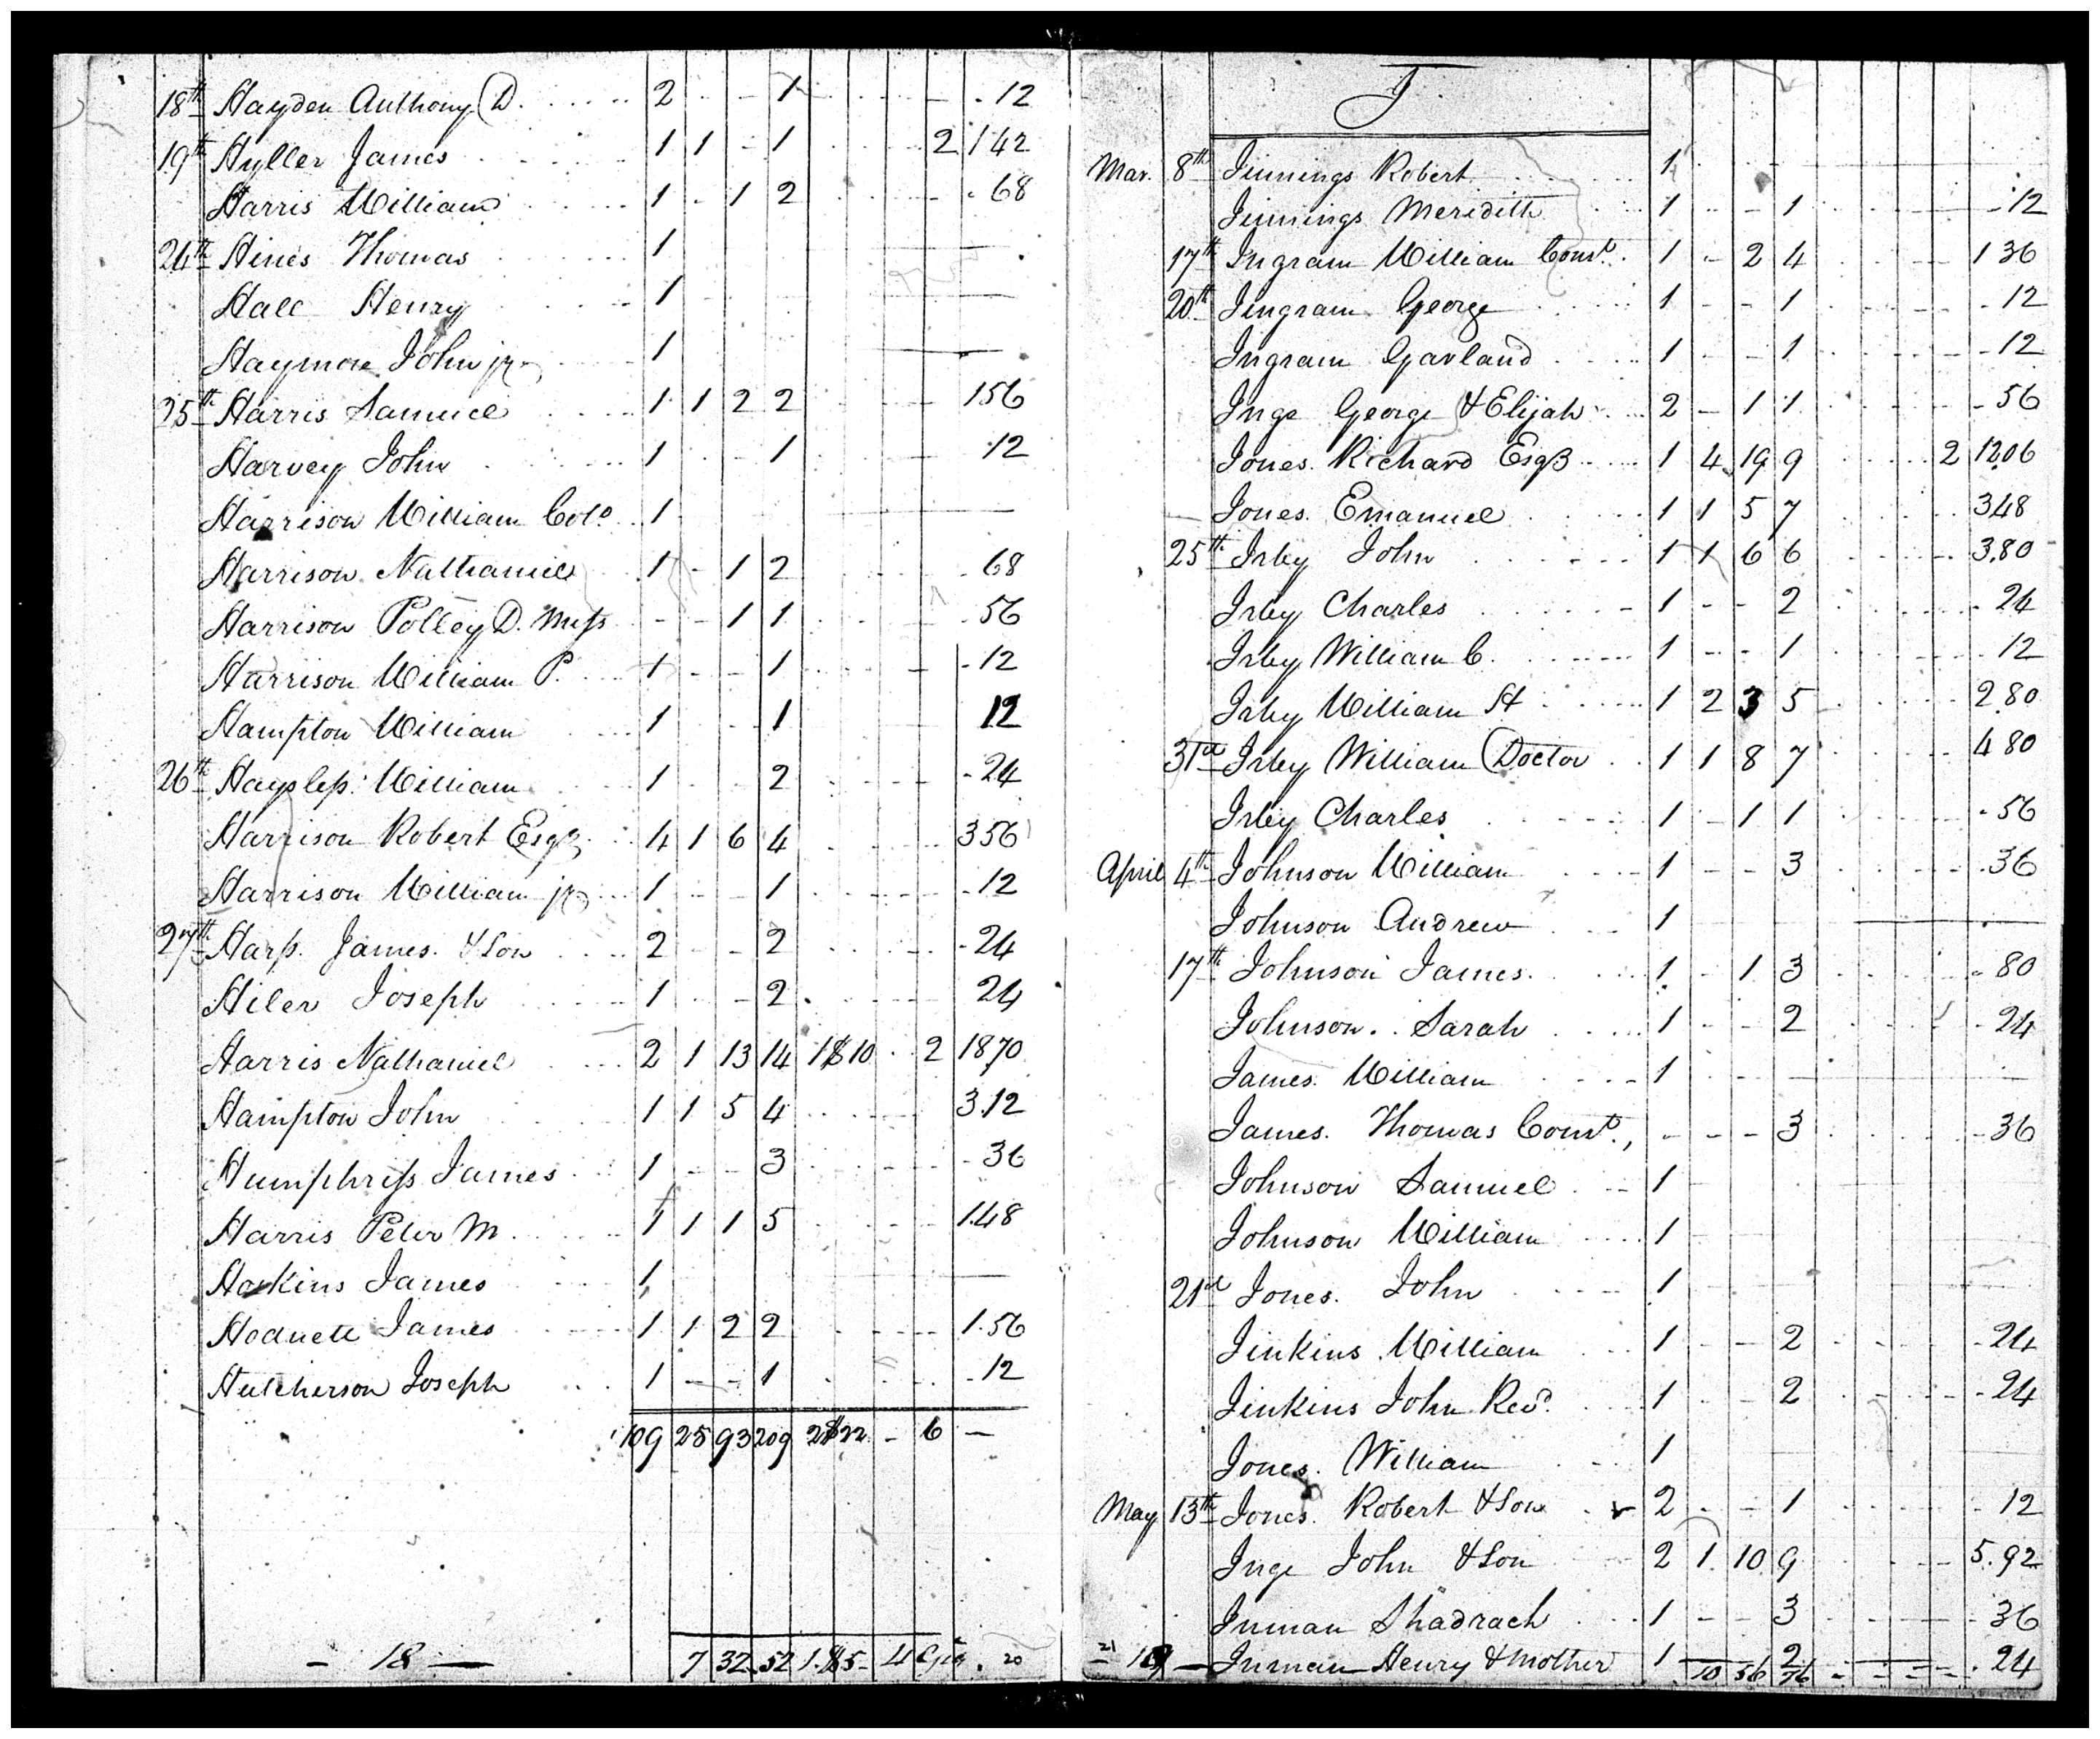 18th Hayden Anthony D. 2 - - 1 - - - - .12
19th Hyller James 1 1 - 1 2 1 42
Harris William 1 - 1 2 .68
24th Hines Thomas 1
Hall Henry 1
Haymore John jr. 1
25th Harris Samuel 1 1 2 2 1 56
Harvey John 1 - - 1 .12
Harrison William Colo. 1
Harrison Nathaniel 1 - 1 2 .68
Harrison Polley D. Miss - - 1 1 .56
Harrison William P. 1 - - 1 .12
Hampton William 1 - - 1 12
26th William 1 - - 2 .24
Harrison Robert Esqr 4 1 6 4 3 56
Harrison William jr 1 - - 1 .12
27th James & Son 2 - - 2 .24
Hiler Joseph 1 - - 2 24
Harris Nathaniel 2 1 13 14 1 $10 2 18 70
Hampton John 1 1 5 4 3.12
Humphriss James 1 - - 3 .36
Harris Peter M 1 1 1 5 1.48
Hoskins James 1
Hodnett James 1 1 2 2 1.56
Hutcherson Joseph 1 - - 1 .12
109 25 93 209 2 $22 - 6 -
- 18 - 7 32 52 20
J
Mar. 8th Jinnings Robert 1
Jinnings Meridith 1 - - 1 .12
17th Ingram William Const. 1 - 2 4 1 36
20th Jingram George 1 - - 1 .12
Ingram Garland 1 - - 1 .12
Inge George & Elijah 2 - 1 1 .56
Jones Richard Esqr 1 4 19 9 2 12.06
Jones Emanuel 1 1 5 7 3.48
25th Irby John 1 1 6 6 3.80
Irby Charles 1 - - 2 .24
Irby William C. 1 - - 1 .12
Irby William St 1 2 3 5 2.80
31st Irby William (Doctor 1 1 8 7 4 80
Irby Charles 1 - 1 1 .56
April 4th Johnson William 1 - - 3 .36
Johnson Andrew 1
17th Johnson James 1 - 1 3 .80
Johnson Sarah 1 - - 2 .24
James William 1
James Thomas Const., - - - 3 .36
Johnson Samuel 1
Johnson William 1
21st Jones John 1
Jinkins William 1 - - 2 .24
Jinkins John Revd. 1 - - 2 .24
Jones William 1
May 13th Jones Robert & Son 2 - - 1 .12
Inge John & Son 2 1 10 9 5.92
Inman Shadrach 1 - - 3 .36
21 - 19 - Inman Henry & Mother 1 2 .24
10 56 76